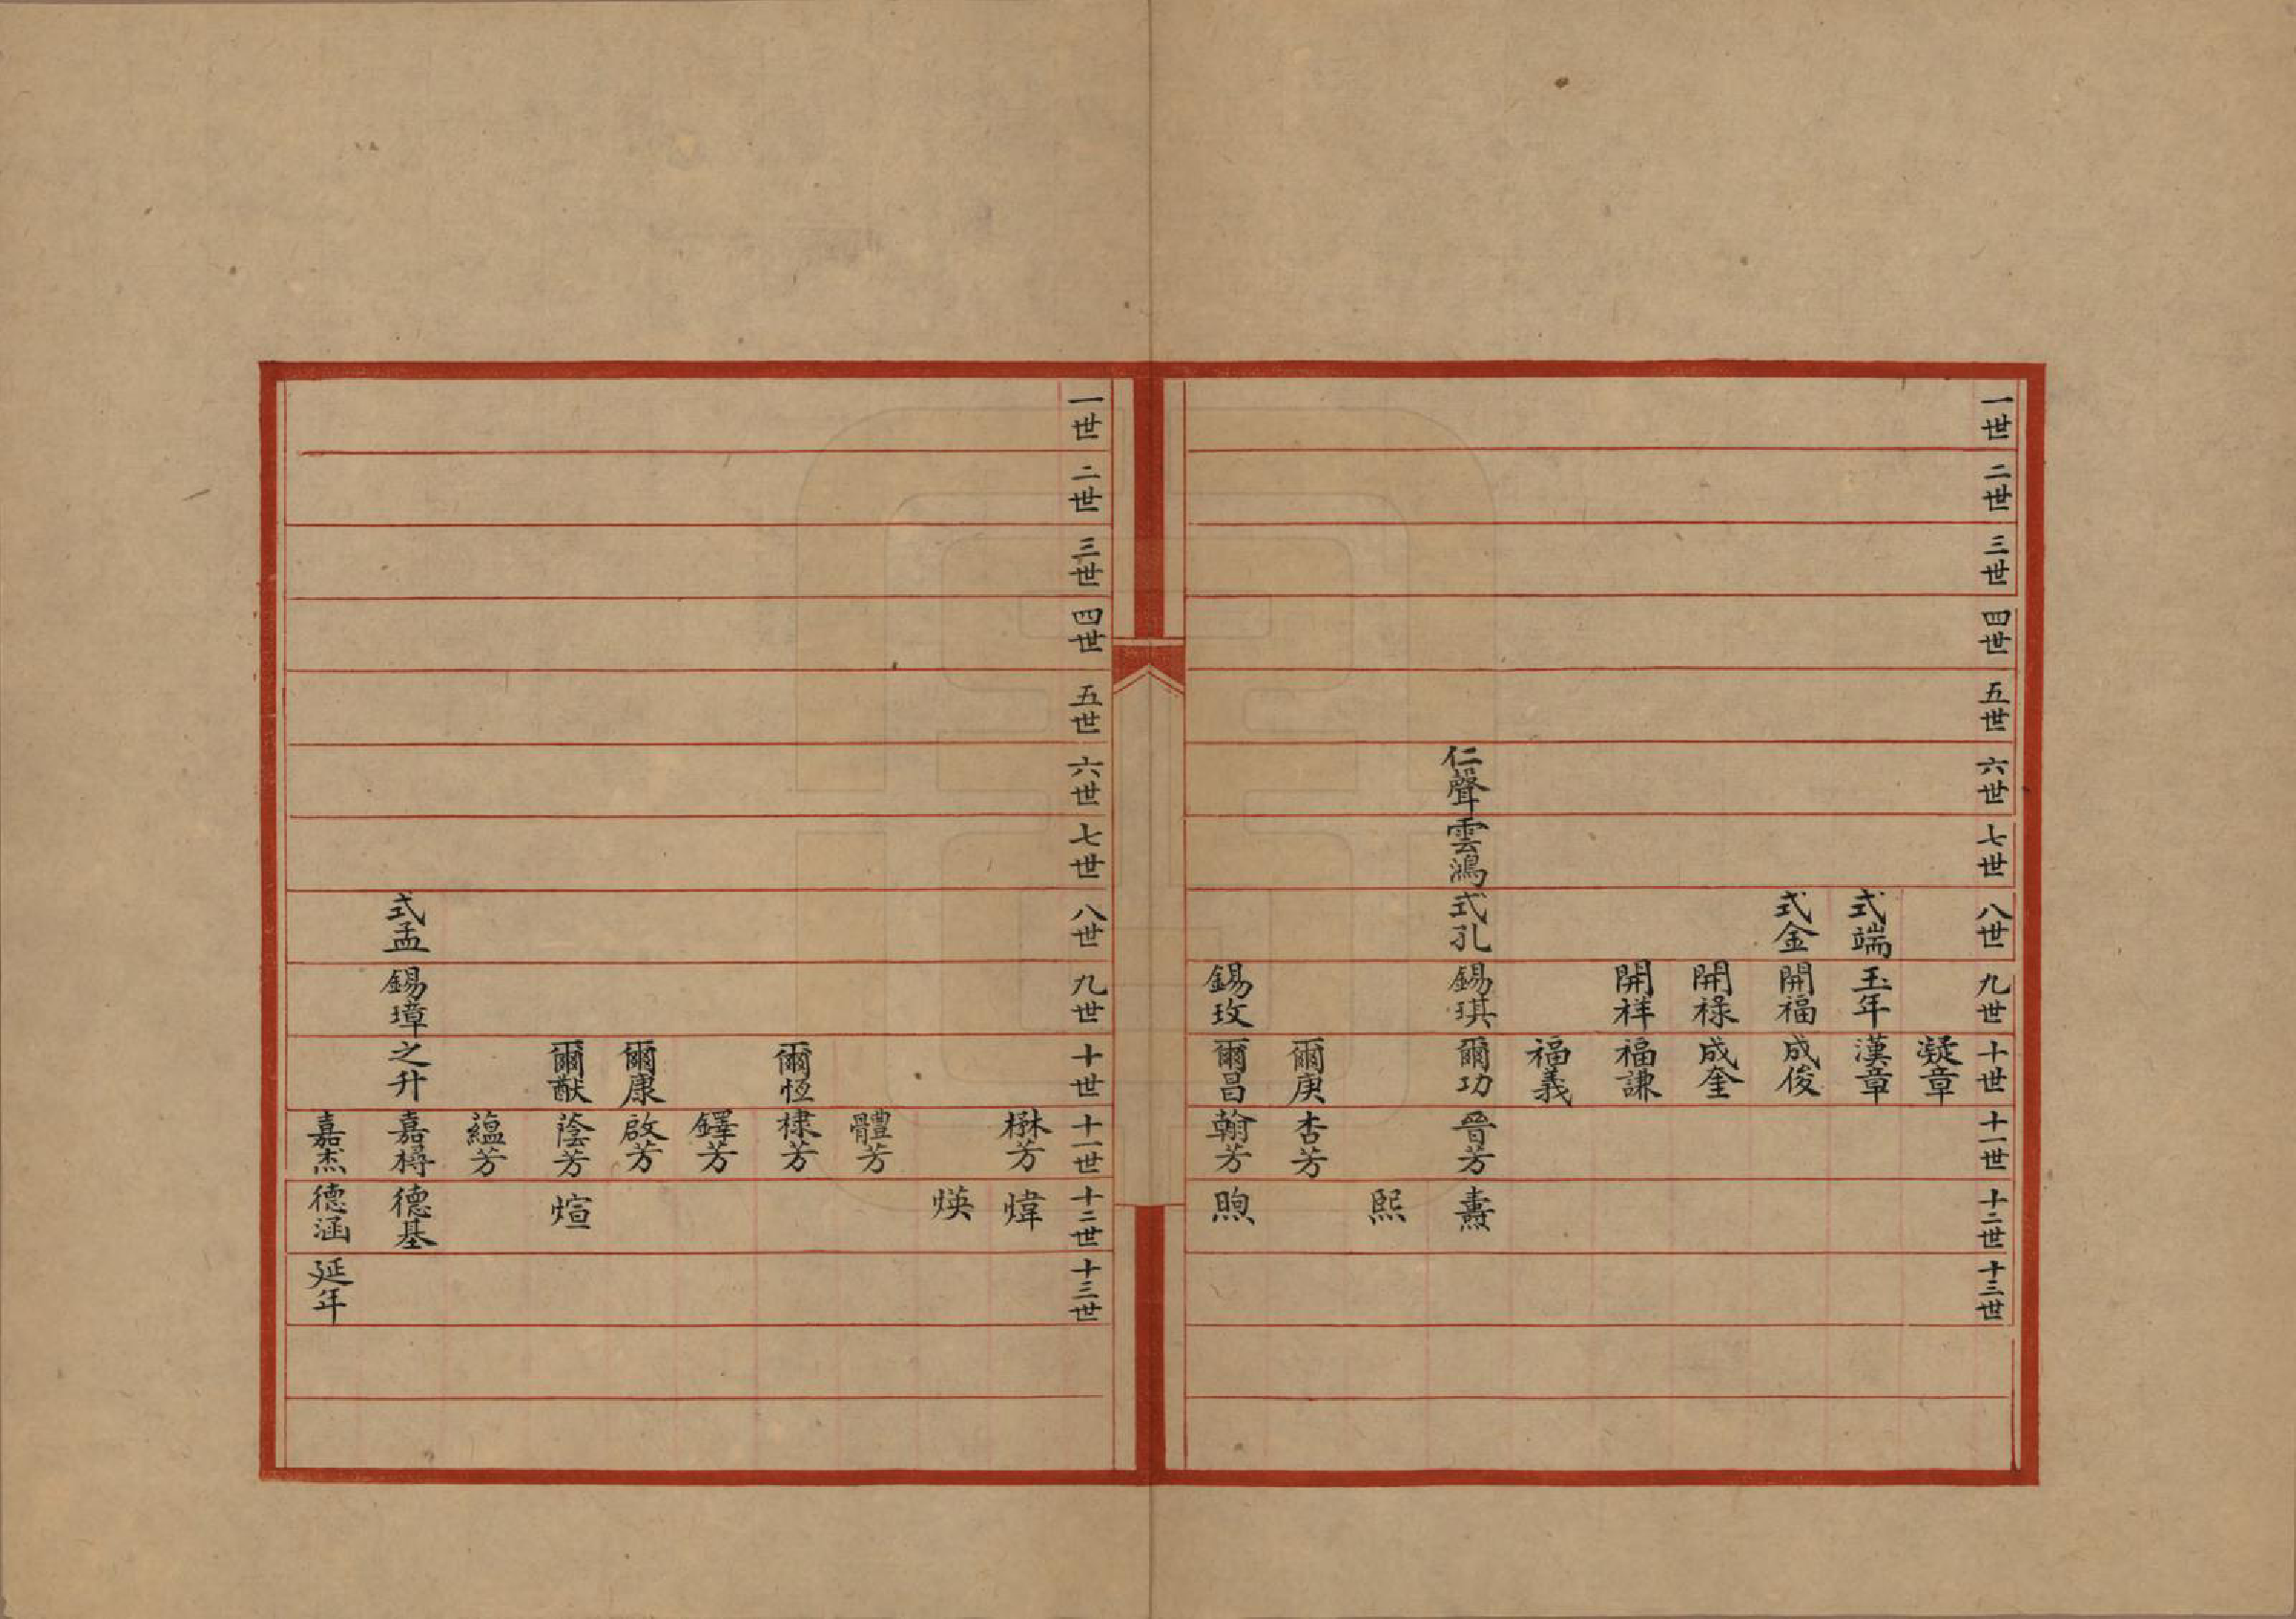 一世二世三世四世五世六世七世八世九世十世十一世十二世十三世
凝章
式端玉年漢章
式金開福成俊
開祿成奎
開祥福謙
福義
仁聲雲鴻式孔錫琪爾功晉芳燾
熙
爾庚杏芳
錫玫爾昌翰芳煦
一世二世三世四世五世六世七世八世九世十世十一世十二世十三世
楙芳煒
煐
體芳
爾恆棣芳
鐸芳
爾康啟芳
爾猷蔭芳煊
蘊芳
式孟錫璋之升嘉樽德基
嘉杰德涵延年